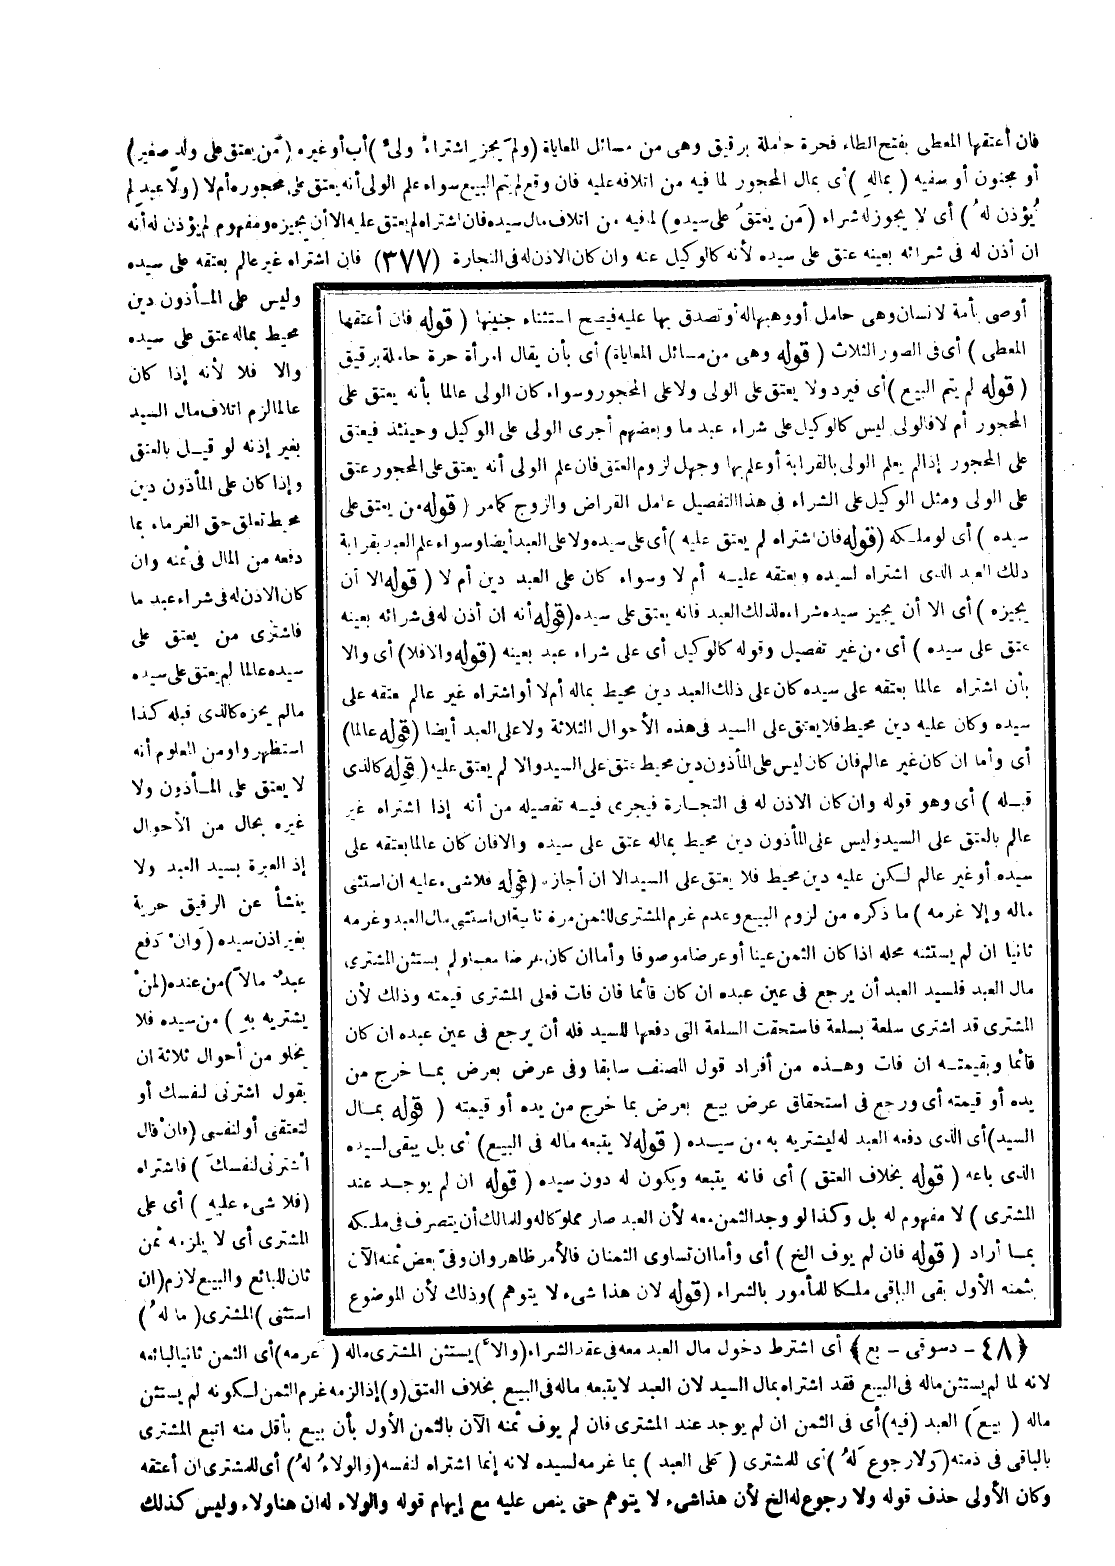 فان أعتقها المعطى بفتح الطاء فحرة حاملة برقيق وهى من مسائل المعاياة (ولم يجز اشتراء ولى) أب أو غيره (من يعتق على ولد صغير)
أو مجنون أو سفيه (بماله) أى بمال المحجور لما فيه من اتلافه عليه فان وقع لم يتم البيع سواء علم الولى أنه يعتق على محجوره أم لا (ولا عبد لم
يؤذن له) أى لا يجوز له شراء (من يعتق على سيده) لما فيه من اتلاف مال سيده فان اشتراه لم يعتق عليه الا أن يجيزه ومفهوم لم يؤذن له أنه
ان أذن له فى شرائه بعينه عتق على سيده لأنه كالوكيل عنه وان كان الاذن له فى التجارة (٣٧٧) فان اشتراه غير عالم بعتقه على سيده
وليس على المأذون دين
محيط بماله عتق على سيده
والا فلا لأنه إذا كان
عالما لزم اتلاف مال السيد
بغير إذنه لو قيل بالعتق
وإذا كان على المأذون دين
محيط تعلق حق الغرماء بما
دفعه من المال فى ثمنه وان
كان الاذن له فى شراء عبد ما
فاشترى من يعتق على
سيده عالما لم يعتق على سيده
مالم يجزه كالذى قبله كذا
استظهر وا ومن المعلوم أنه
لا يعتق على المأذون ولا
غيره بحال من الأحوال
إذ العبرة بسيد العبد ولا
ينشأ عن الرقيق حرية
بغير اذن سيده (وان دفع
عبد مالا) من عنده (لمن
يشتريه به) من سيده فلا
يخلو من أحوال ثلاثة ان
يقول اشترنى لنفسك أو
لتعتقنى أو لنفسى (فان قال
اشترنى لنفسك) فاشتراه
(فلا شىء عليه) أى على
المشترى أى لا يلزمه ثمن
ثان للبائع والبيع لازم (ان
استثنى) المشترى (ماله)
أوصى بأمة لانسان وهى حامل أو وهبها له أو تصدق بها عليه فيصح استثناء جنينها (قوله فان أعتقها
المعطى) أى فى الصور الثلاث (قوله وهى من مسائل المعاياة) أى بأن يقال امرأة حرة حاملة برقيق
(قوله لم يتم البيع) أى فيرد ولا يعتق على الولى ولا على المحجور وسواء كان الولى عالما بأنه يعتق على
المحجور أم لا فالولى ليس كالوكيل على شراء عبد ما وبعضهم أجرى الولى على الوكيل وحينئذ فيعتق
على المحجور إذا لم يعلم الولى بالقرابة أو علم بها وجهل لزوم العتق فان علم الولى أنه يعتق على المحجور عتق
على الولى ومثل الوكيل على الشراء فى هذا التفصيل عامل القراض والزوج كما مر (قوله من يعتق على
سيده) أى لو ملكه (قوله فان اشتراه لم يعتق عليه) أى على سيده ولا على العبد أيضا وسواء علم العبد بقرابة
ذلك العبد الذى اشتراه لسيده وبعتقه عليه أم لا وسواء كان على العبد دين أم لا (قوله الا أن
يجيزه) أى الا أن يجيز سيده شراءه لذلك العبد فانه يعتق على سيده (قوله أنه ان أذن له فى شرائه بعينه
عتق على سيده) أى من غير تفصيل وقوله كالوكيل أى على شراء عبد بعينه (قوله والا فلا) أى والا
بأن اشتراه عالما بعتقه على سيده كان على ذلك العبد دين محيط بماله أم لا أو اشتراه غير عالم عتقه على
سيده وكان عليه دين محيط فلا يعتق على السيد فى هذه الأحوال الثلاثة ولا على العبد أيضا (قوله عالما)
أى وأما ان كان غير عالم فان كان ليس على المأذون دين محيط عتق على السيد والا لم يعتق عليه (قوله كالذى
قبله) أى وهو قوله وان كان الاذن له فى التجارة فيجرى فيه تفصيله من أنه إذا اشتراه غير
عالم بالعتق على السيد وليس على المأذون دين محيط بماله عتق على سيده والا فان كان عالما بعتقه على
سيده أو غير عالم لكن عليه دين محيط فلا يعتق على السيد الا ان أجازه (قوله فلا شىء عليه ان استثنى
ماله وإلا غرمه) ما ذكره من لزوم البيع وعدم غرم المشترى للثمن مرة ثانية ان استثنى مال العبد وغرمه
ثانيا ان لم يستثنه محله اذا كان الثمن عينا أو عرضا موصوفا وأما ان كان عرضا معينا ولم يستثن المشترى
مال العبد فلسيد العبد أن يرجع فى عين عبده ان كان قائما فان فات فعلى المشترى قيمته وذلك لأن
المشترى قد اشترى سلعة بسلعة فاستحقت السلعة التى دفعها للسيد فله أن يرجع فى عين عبده ان كان
قائما وبقيمته ان فات وهذه من أفراد قول المصنف سابقا وفى عرض بعرض بما خرج من
يده أو قيمته أى ورجع فى استحقاق عرض بيع بعرض بما خرج من يده أو قيمته (قوله بمال
السيد) أى الذى دفعه العبد له ليشتريه به من سيده (قوله لا يتبعه ماله فى البيع) أى بل يبقى لسيده
الذى باعه (قوله بخلاف العتق) أى فانه يتبعه ويكون له دون سيده (قوله ان لم يوجد عند
المشترى) لا مفهوم له بل وكذا لو وجد الثمن معه لأن العبد صار مملوكا له وللمالك أن يتصرف فى ملكه
بما أراد (قوله فان لم يوف الخ) أى وأما ان تساوى الثمنان فالأمر ظاهر وان وفى بعض ثمنه الآن
بثمنه الأول بقى الباقى ملكا للمأمور بالشراء (قوله لان هذا شىء لا يتوهم) وذلك لأن الموضوع
﴿٤٨ - دسوقى - بع﴾ أى اشترط دخول مال العبد معه فى عقد الشراء (والا) يستثن المشترى ماله (غرمه) أى الثمن ثانيا لبائعه
لانه لما لم يستثن ماله فى البيع فقد اشتراه بمال السيد لان العبد لا يتبعه ماله فى البيع بخلاف العتق (و) إذا لزمه غرم الثمن لكونه لم يستثن
ماله (بيع) العبد (فيه) أى فى الثمن ان لم يوجد عند المشترى فان لم يوف ثمنه الآن بالثمن الأول بأن بيع بأقل منه اتبع المشترى
بالباقى فى ذمته (ولا رجوع له) أى للمشترى (على العبد) بما غرمه لسيده لانه إنما اشتراه لنفسه (والولاء له) أى للمشترى ان أعتقه
وكان الأولى حذف قوله ولا رجوع له الخ لأن هذا شىء لا يتوهم حتى ينص عليه مع إيهام قوله والولاء له ان هنا ولاء وليس كذلك